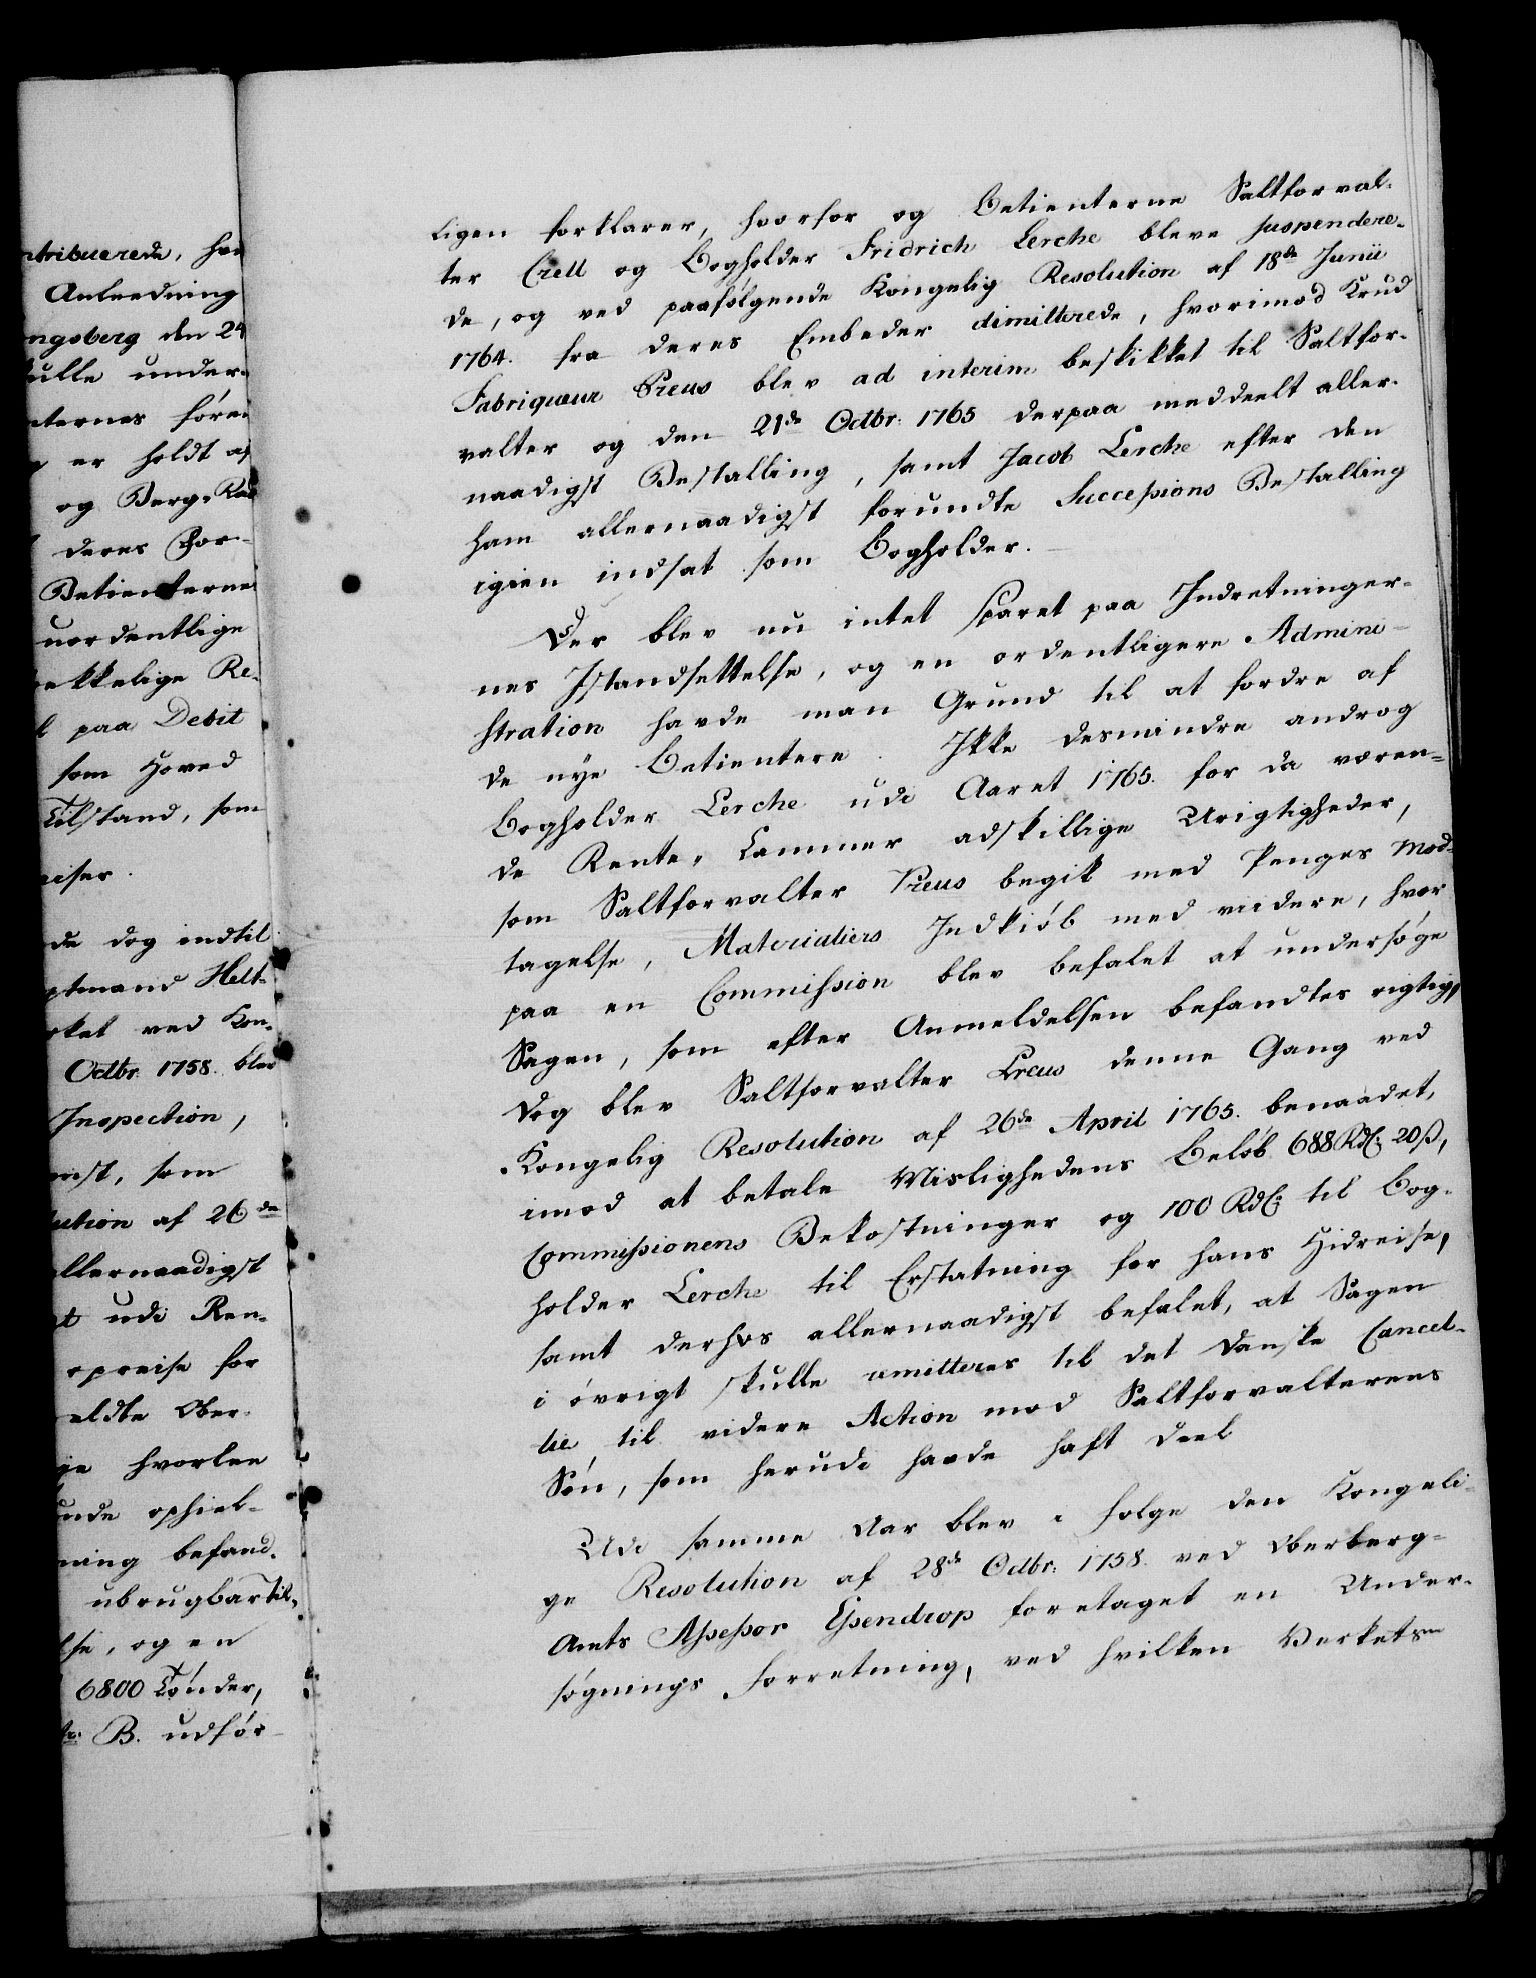 ntribuerede, hvo
Anleedning
ngsberg den 24
ulle under-
nternes fören
er holdt af
og Berg-Raa
deres For-
Betienterne
uordentlige
ekkelige Re-
paa Debit
som Hoved
Tilstand, som
eiser.
de dog indtil
ptmand Helt-
rket ved Kon-
Octbr. 1758. blev
Inspection,
enst, som
lution af 26de
llernaadigst
t udi Ren-
opreise for
eldte Ober-
ge hvorlee
unde ophiel-
ning befand-
ubrugbar Til-
lse, og en
6800 Tönder,
B. udför-
ligen forklarer, hvorfor og Betienterne Saltforval-
ter Crell og Bogholder Fridrich Lerche bleve suspendere-
de, og ved paafölgende Kongelig Resolution af 18de Junii
1764. fra deres Embeder dimitterede, hvorimod Krud
Fabriqueur Preus blev ad interim beskikket til Saltfor-
valter og den 21de Octbr: 1765 derpaa meddeelt aller-
naadigst Bestalling, samt Jacob Lerche efter den
ham allernaadigst forundte Successions Bestalling
igien indsat som Bogholder.
Der blev nu intet sparet paa Indretninger-
nes Istandsettelse, og en ordentligere Admini-
stration havde man Grund til at fordre af
de nye Betientere. Ikke desmindre androg
Bogholder Lerche udi Aaret 1765. for da væren-
de Rente-Cammer adskillige Urigtigheder,
som Saltforvalter Preus begik med Penges Mod-
tagelse, Materialiers Indkiöb med viidere, hvor
paa en Commission blev befalet at undersöge
Sagen, som efter Anmeldelsen befandtes rigtig,
dog blev Saltforvalter Preus denne Gang ved
Kongelig Resolution af 26de April 1765. benaadet,
imod at betale Mislighedens Belöb 688 Rdl: 20 ß,
Commissionens Bekostninger og 100 Rdl: til Bog-
holder Lerche til Erstatning for hans Hidreise,
samt derhos allernaadigst befalet, at Sagen
i övrigt skulle remitteres til det danske Cancel-
lie til videre Action mod Saltforvalterens
Sön, som herudi havde haft Deel
Udi samme Aar blev i fölge den Kongeli-
ge Resolution af 28de Octbr: 1758. ved Oberberg-
Amts Assessor Esendrop foretaget en Under-
sögnings Forretning, ved hvilken Verkets